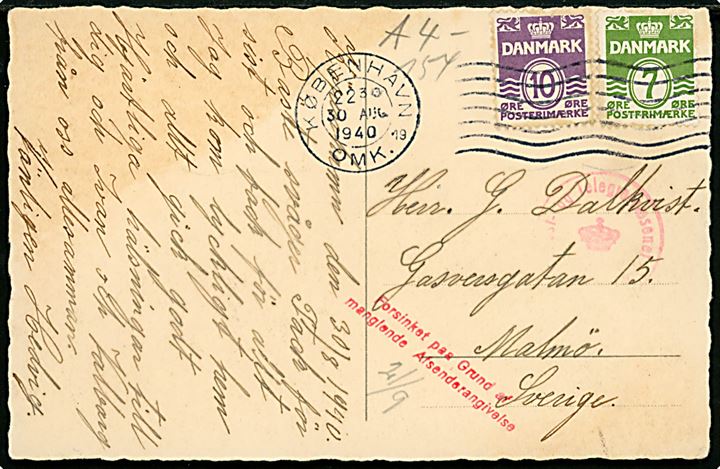 A4-
154
DANMARK
10
ØRE ØRE
POSTFRIMÆRKE
DANMARK
7
ØRE ØRE
POSTFRIMÆRKE
KØBENHAVN
22 30
30 AUG
1940 19
OMK.
den 30/8 1940.
Bäste svåger Tack för
sist och tack för allt
Jag kom lyckligt hem
och allt gick gott
Hjärtliga hälsningar till
dig och Ivar o
från oss allesammans
Vänligen Hedvig.
Herr. G. Dalkvist.
Gasversgatan 15.
Malmö.
Sverige.
Forsinket paa Grund af
manglende Afsenderangivelse
21/9